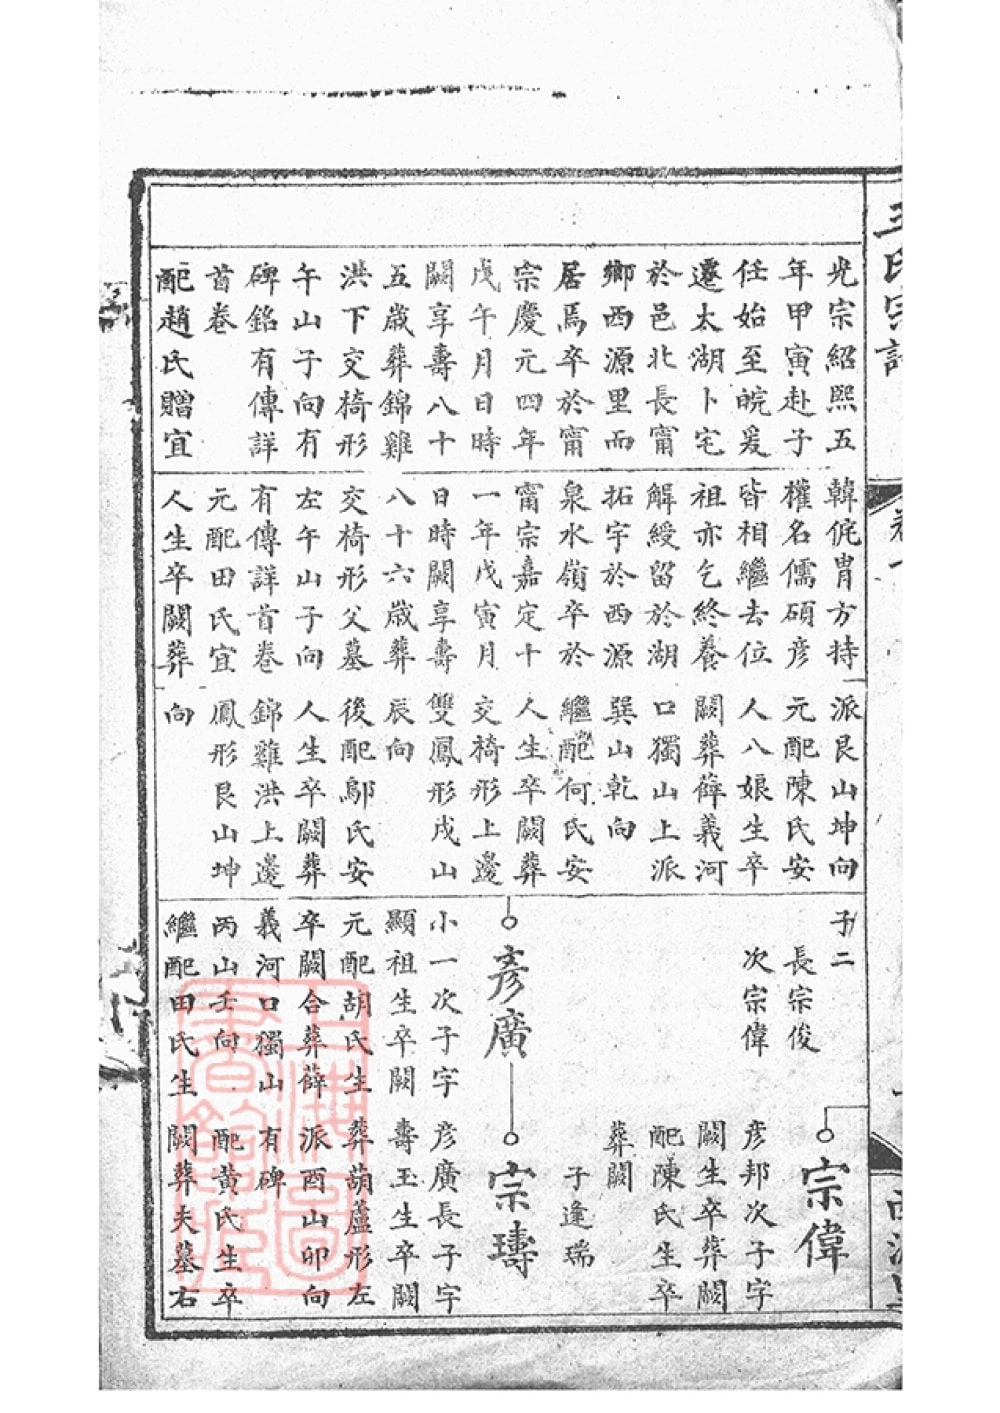 王氏宗譜
卷一
光宗紹熙五
年甲寅赴子
任始至皖爰
遷太湖卜宅
於邑北長甯
鄉西源里而
居焉卒於甯
宗慶元四年
戊午月日時
闕享壽八十
五歲葬錦雞
洪下交椅形
午山子向有
碑銘有傳詳
首卷
配趙氏贈宜
韓侂胄方持
權名儒碩彥
皆相繼去位
祖亦乞終養
解綬留於湖
拓宇於西源
泉水嶺卒於
甯宗嘉定十
一年戊寅月
日時闕享壽
八十六歲葬
交椅形父墓
左午山子向
有傳詳首卷
元配田氏宜
人生卒闕葬
派艮山坤向
元配陳氏安
人八娘生卒
闕葬薛義河
口獨山上派
巽山乾向
繼配何氏安
人生卒闕葬
交椅形上邊
雙鳳形戌山
辰向
後配鄔氏安
人生卒闕葬
錦雞洪上邊
鳳形艮山坤
向
子二
長宗俊
次宗偉
彥廣
小一次子字
顯祖生卒闕
元配胡氏生
卒闕合葬薛
義河口獨山
丙山壬向
繼配田氏生
宗偉
彥邦次子字
闕生卒葬闕
配陳氏生卒
葬闕
子逢瑞
宗璹
彥廣長子字
壽玉生卒闕
葬葫蘆形左
派酉山卯向
有碑
配黃氏生卒
闕葬夫墓右
上海圖書館藏